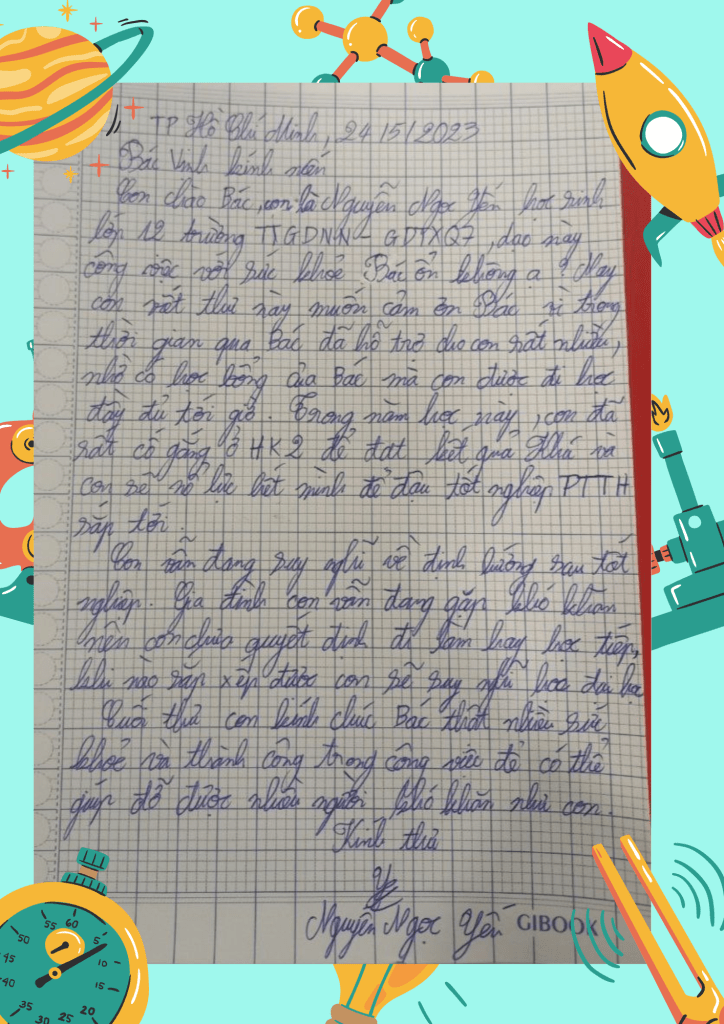 TP Hồ Chí Minh, 24/5/2023
Bác Vinh kính mến
Con chào Bác, con là Nguyễn Ngọc Yến học sinh
lớp 12 trường TTGDNN - GDTXQ7, dạo này
công việc với sức khoẻ Bác ổn không ạ? Nay
con viết thư này muốn cảm ơn Bác vì trong
thời gian qua Bác đã hỗ trợ cho con rất nhiều,
nhờ có học bổng của Bác mà con được đi học
đầy đủ tới giờ. Trong năm học này, con đã
rất cố gắng ở HK2 để đạt kết quả Khá và
con sẽ nổ lực hết mình để đậu tốt nghiệp PTTH
sắp tới.
Con vẫn đang suy nghĩ về định hướng sau tốt
nghiệp. Gia đình con vẫn đang gặp khó khăn
nên con chưa quyết định đi làm hay học tiếp,
khi nào sắp xếp được con sẽ suy nghĩ học đại học
Cuối thư con kính chúc Bác thật nhiều sức
khoẻ và thành công trong công việc để có thể
giúp đỡ được nhiều người khó khăn như con.
Kính thư
Nguyễn Ngọc Yến
GIBOOK
5
10
15
20
25
30
35
40
45
50
55
60